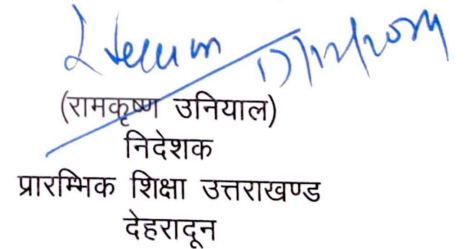 17/12/2024
(रामकृष्ण उनियाल)
निदेशक
प्रारम्भिक शिक्षा उत्तराखण्ड
देहरादून